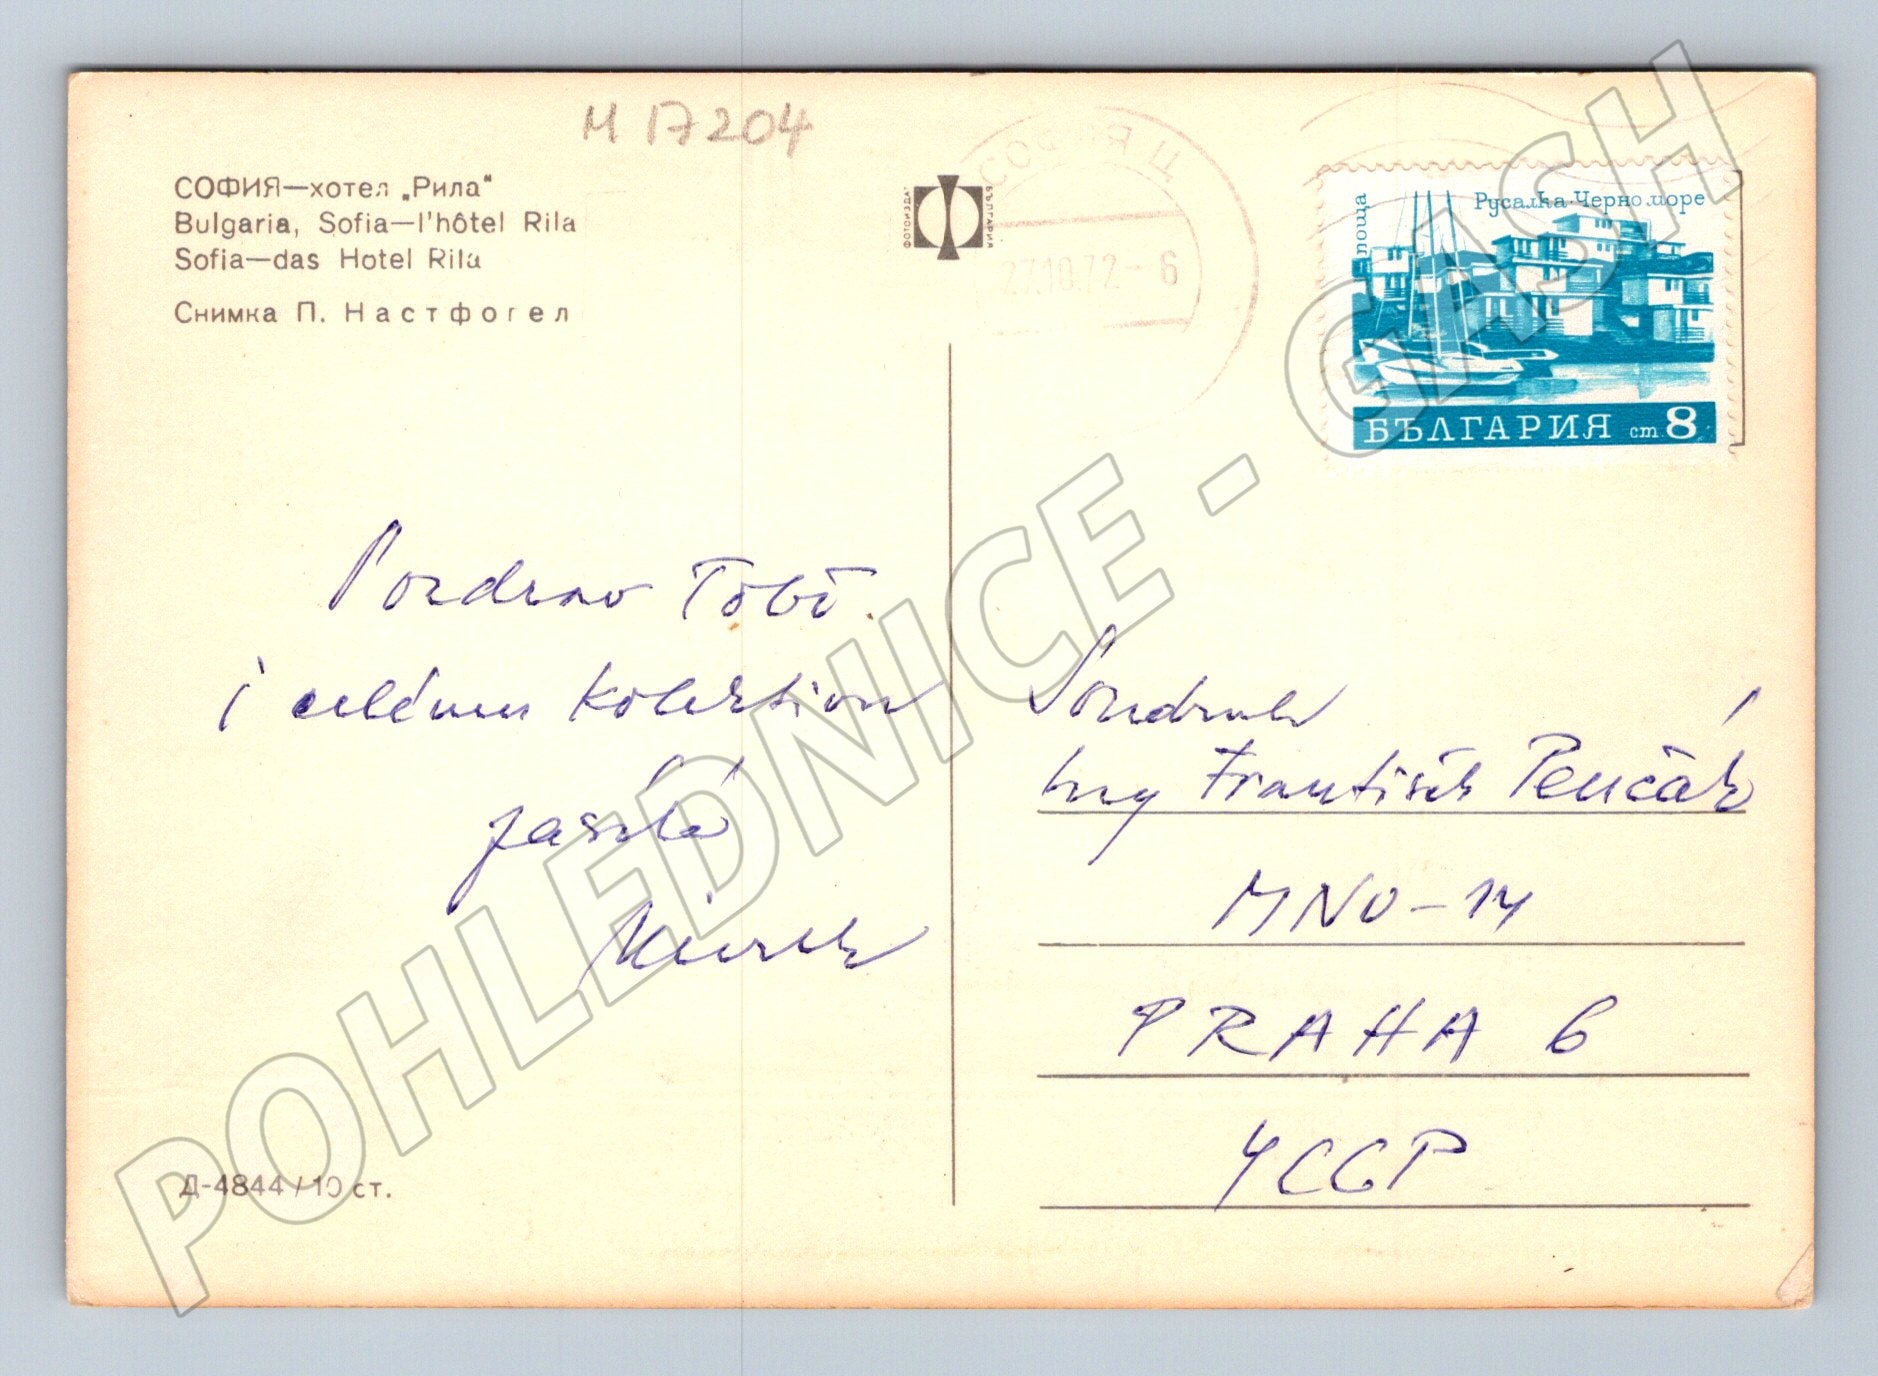 M 17204
СОФИЯ—хотел „Рила“
Bulgaria, Sofia—l'hôtel Rila
Sofia—das Hotel Rila
Снимка П. Настфогел
ФОТОИЗДАТ
БЪЛГАРИЯ
СОФИЯ Ц
27.10.72-6
поща
Русалка·Черно море
БЪЛГАРИЯ ст. 8
Pozdrav Tobě
i celému kolektivu
zasílá
Mirek
Soudruh
Ing František Penčák
MNO-14
PRAHA 6
ЧССР
Д-4844/10 ст.
POHLEDNICE - GASH